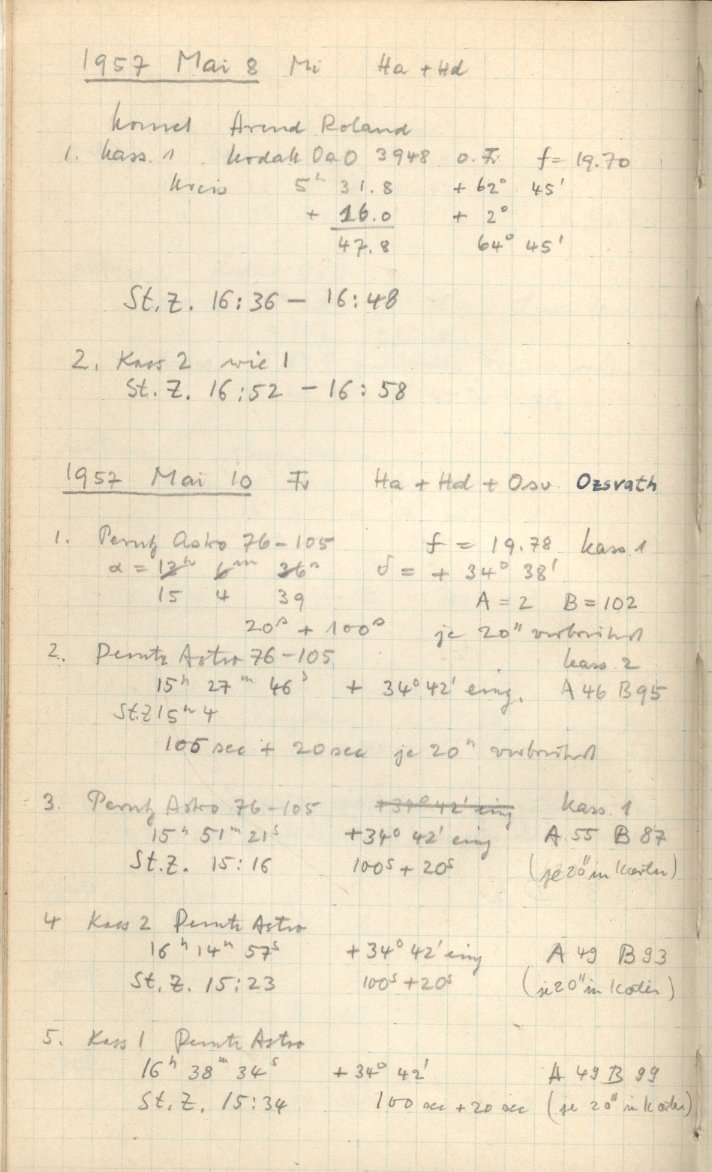 1957 Mai 8 Mi Ha + Hd
Komet Arend Roland
1. Kass. 1 Kodak OaO 3948 o. Fi f = 19.70
Kreis 5h 31.8 + 62° 45'
+ 16.0 + 2°
47.8 64° 45'
St. Z. 16:36 – 16:48
2. Kass 2 wie 1
St. Z. 16:52 – 16:58
1957 Mai 10 Fr Ha + Hd + Osv Ozsvath
1. Perutz Astro 76-105 f = 19.78 Kass. 1
α = 13h 6m 36s δ = + 34° 38'
15 4 39 A = 2 B = 102
20s + 100s je 20" vorbelichtet
2. Perutz Astro 76-105 Kass. 2
15h 27m 46s + 34° 42' eing. A 46 B 95
St.Z 15h 4
105 sec + 20 sec je 20" vorbelichtet
3. Perutz Astro 76-105 +34° 42' eing Kass. 1
15h 51m 21s +34° 42' eing A 55 B 87
St. Z. 15:16 100s + 20s (je 20" im Kasten)
4 Kass 2 Perutz Astro
16h 14m 57s +34° 42' eing A 49 B 93
St. Z. 15:23 100s + 20s (je 20" im Kasten)
5. Kass 1 Perutz Astro
16h 38m 34s + 34° 42' A 49 B 99
St. Z. 15:34 100 sec + 20 sec (je 20" im Kasten)